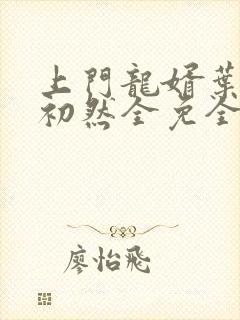 上門龍婿葉
初然全免全
廖怡飛